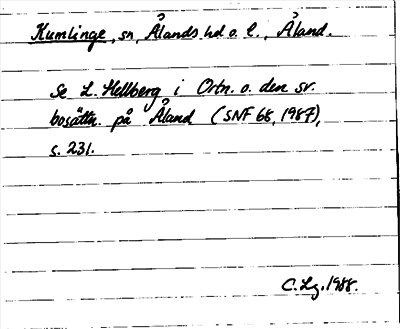 Kumlinge, sn, Ålands hd o. l., Åland.
Se L. Hellberg i Ortn. o. den sv.
bosättn. på Åland (SNF 68, 1987),
s. 231.
C. Lg. 1988.